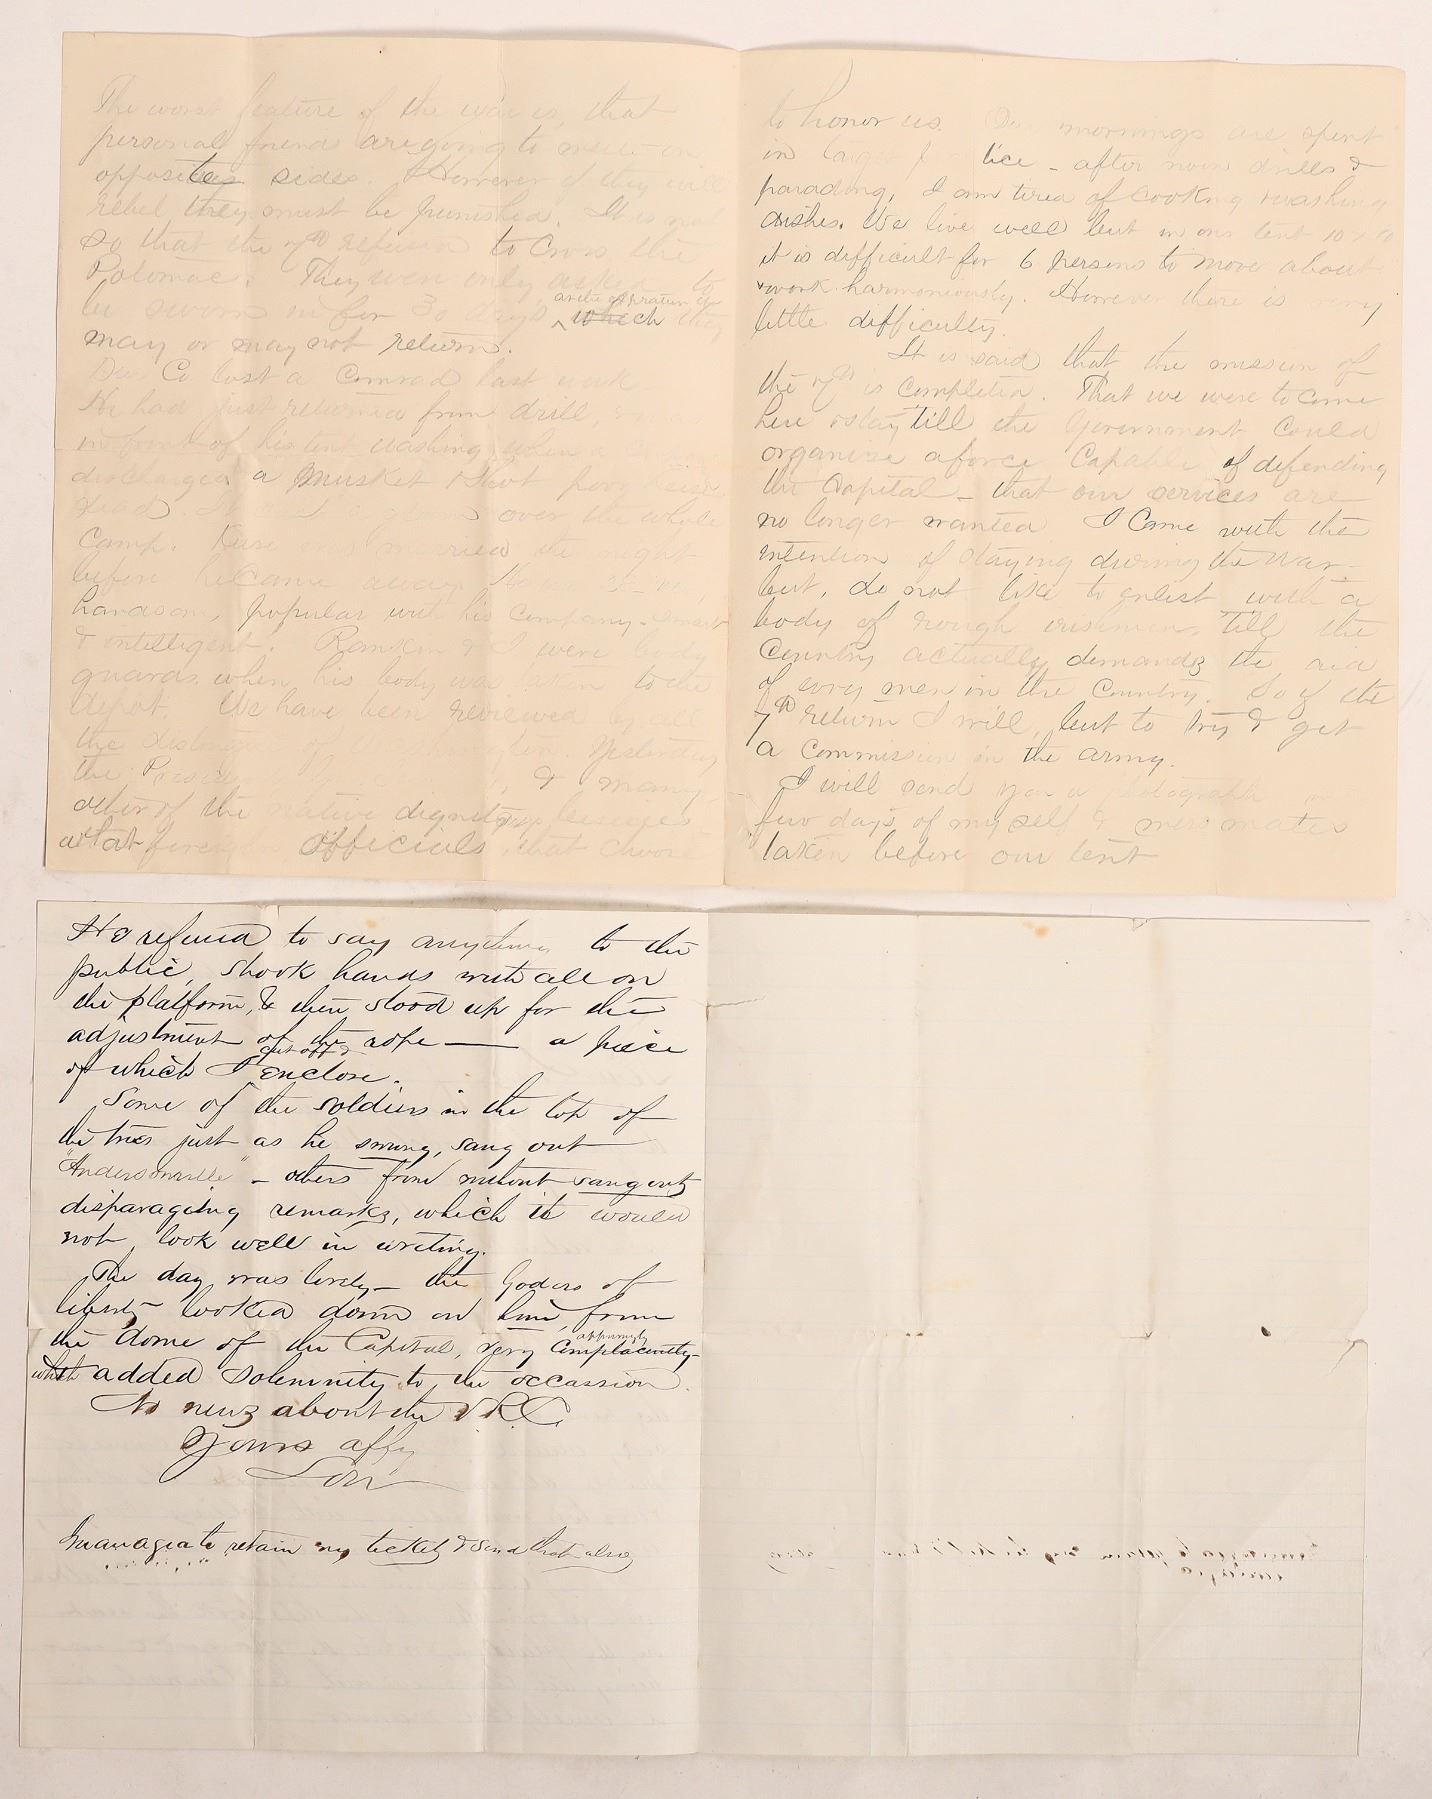 The worst feature of the war is, that
personal friends are going to meet on
opposites sides. However if they will
rebel, they must be punished. It is not
so that the 7th refused to cross the
Potomac. They were only asked to
be sworn in for 30 days, at the expiration of which they
may or may not return.
Our Co lost a Comrad last week
He had just returned from drill,
in front of his tent washing when a
discharged a musket & shot poor Keese
dead. over the whole
Camp. Keese married the night
before he came away.
handsom, popular with his company - smart
& intelligent. Rankin & I were body
guards when his body was taken to the
depot. We have been reviewed by all
the of Washington. Yesterday
the & many
other of the native dignitarys besides
what foreign officials that choose
to honor us. Our mornings are spent
in tice - after noon drills &
parading. I am tired of cooking & washing
dishes. We live well but in our tent 10 x 10
it is difficult for 6 persons to move about
& work harmoniously. However there is very
little difficulty.
It is said that the mission of
the 7th is completed. That we were to come
here & stay till the Government could
organise a force Capable of defending
the Capital - that our services are
no longer wanted I Came with the
intention of staying during the war -
but, do not like to enlist with a
body of rough irishmen, till the
Country actually demandz the aid
of every men in the Country. So if the
7th return I will, but to try & get
a commission in the army.
I will send you a photograph
few days of myself & mess mates
taken before our tent
He refused to say anything to the
public, shook hands with all on
the platform, & then stood up for the
adjustment of the rope — a piece
of which I cut off & enclose.
Some of the soldiers in the top of
the trees just as he swung, sang out
"Andersonville" - others from without sang out
disparaging remarks, which it would
not look well in writing.
The day was lovely - the Godess of
liberty looked down on him, from
the dome of the Capitol, very complacently -
which added solemnity to the occassion.
No newz about the V.R.C.
Yours affy
Lou
I managed to retain my ticket & send that also